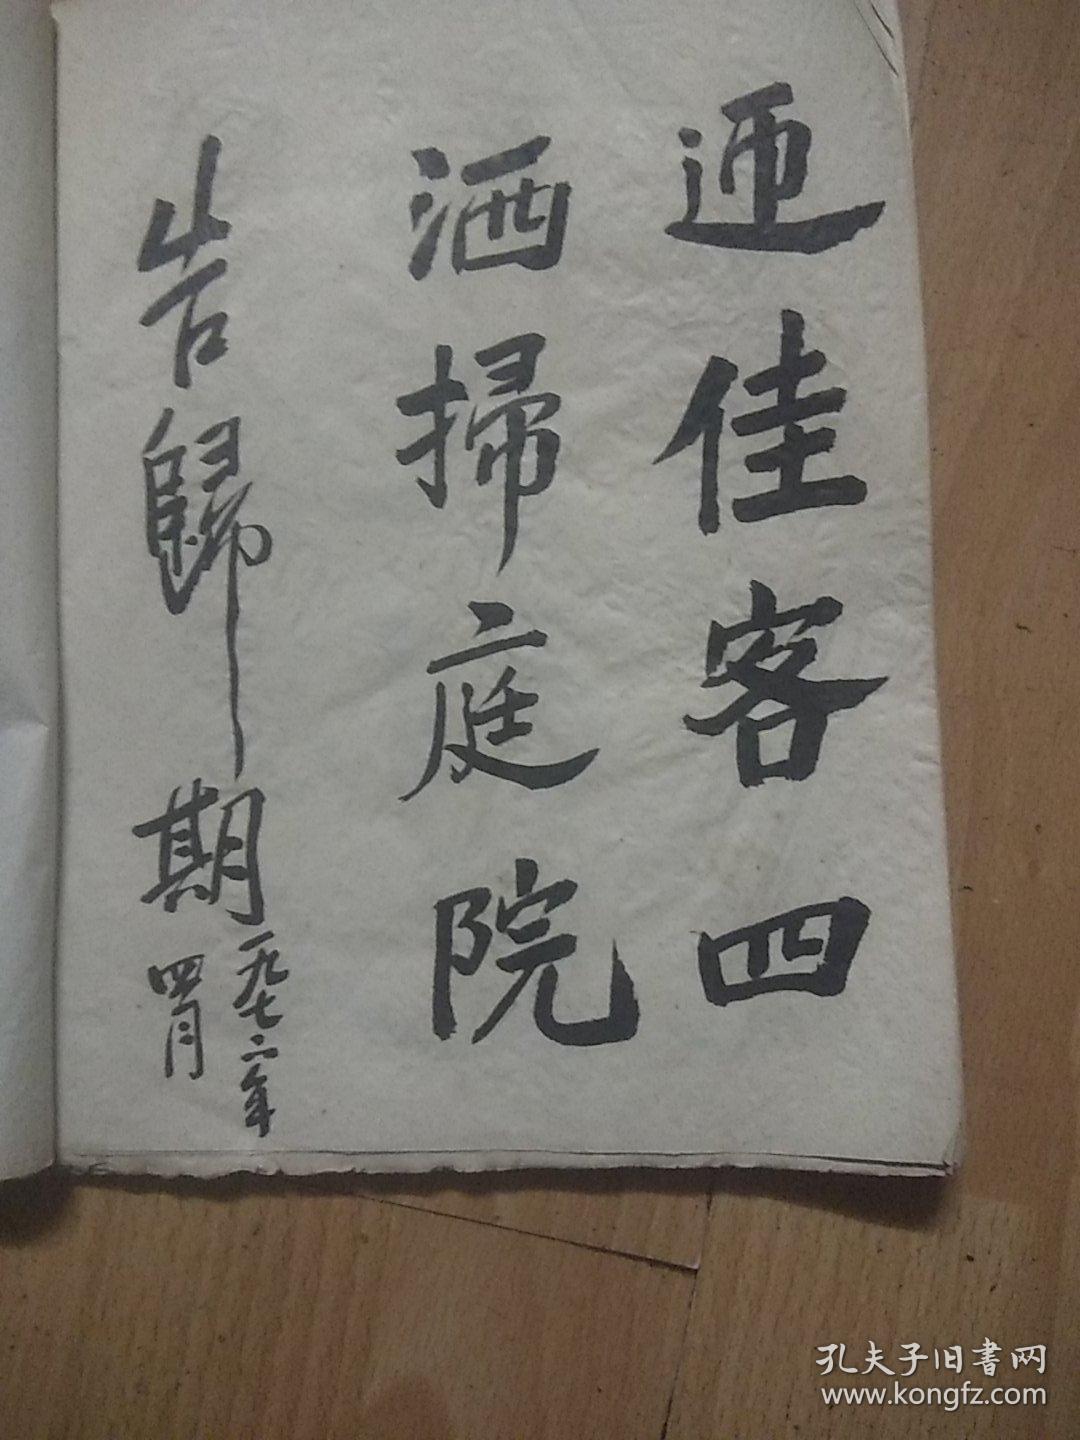 迊佳客四
洒掃庭院
告歸期
一九七二年
四月
孔夫子旧書网
www.kongfz.com